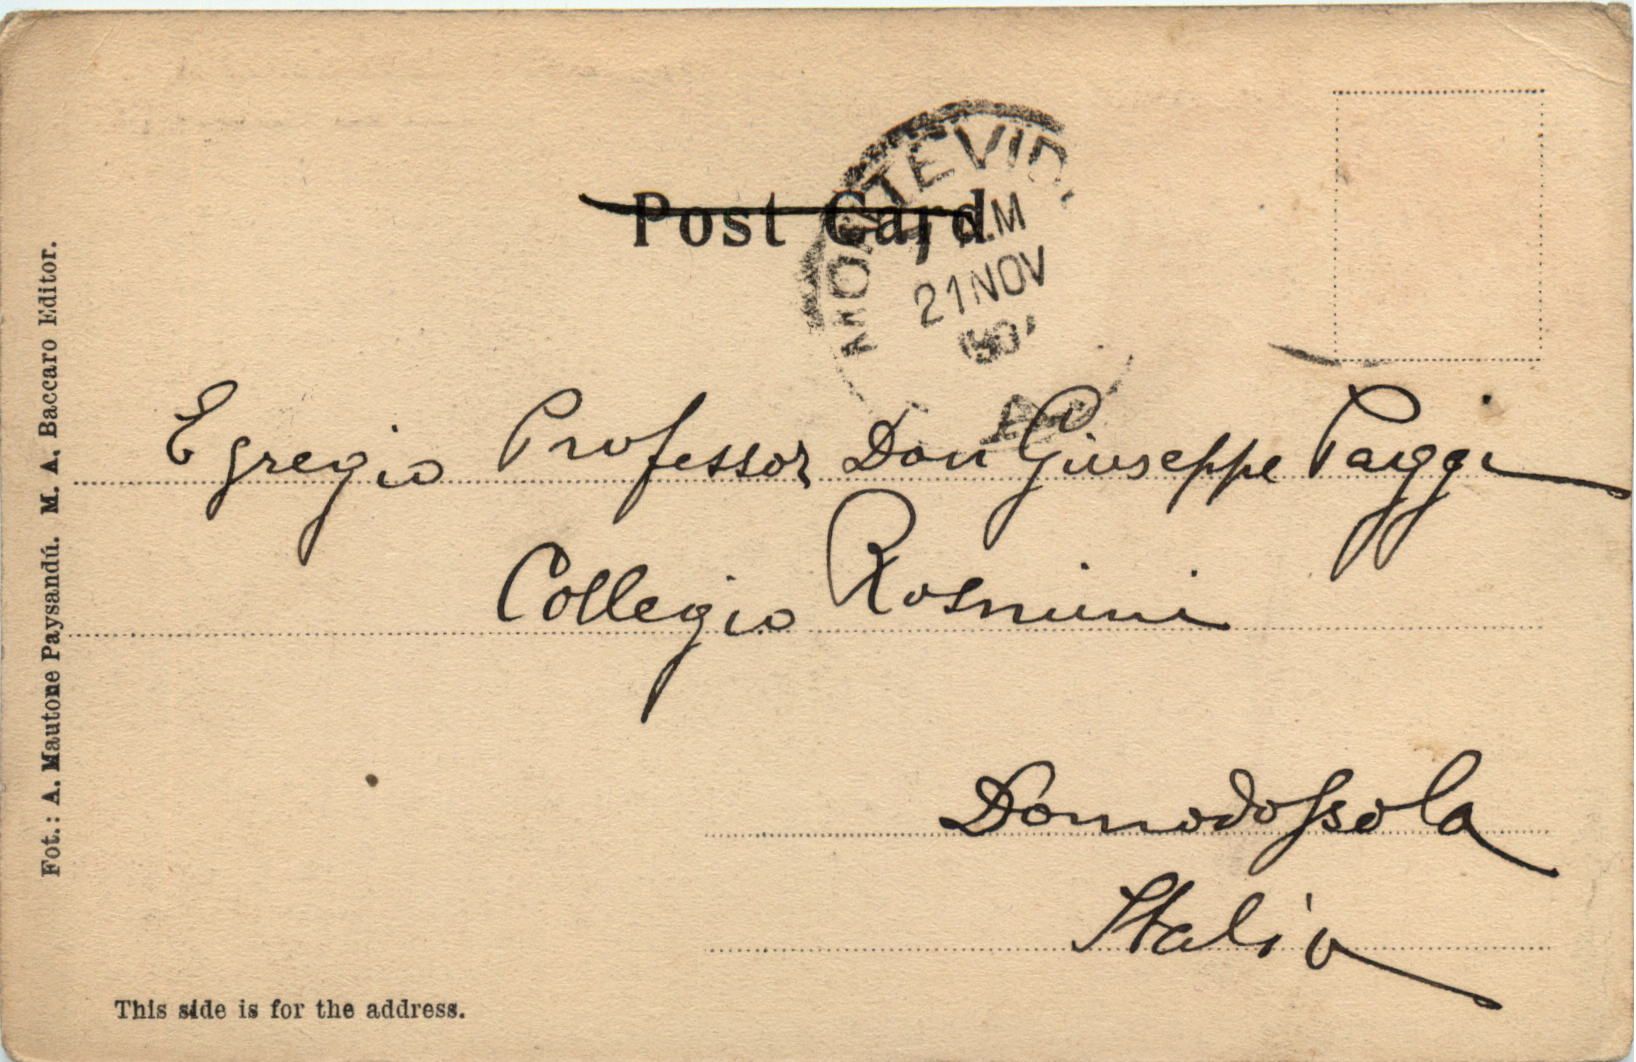 Post Card
MONTEVID
M
21 NOV
Egregio Professor Don Giuseppe Paggi
Collegio Rosmini
Domodossola
Italia
Fot.: A. Mautone Paysandú. M. A. Baccaro Editor.
This side is for the address.